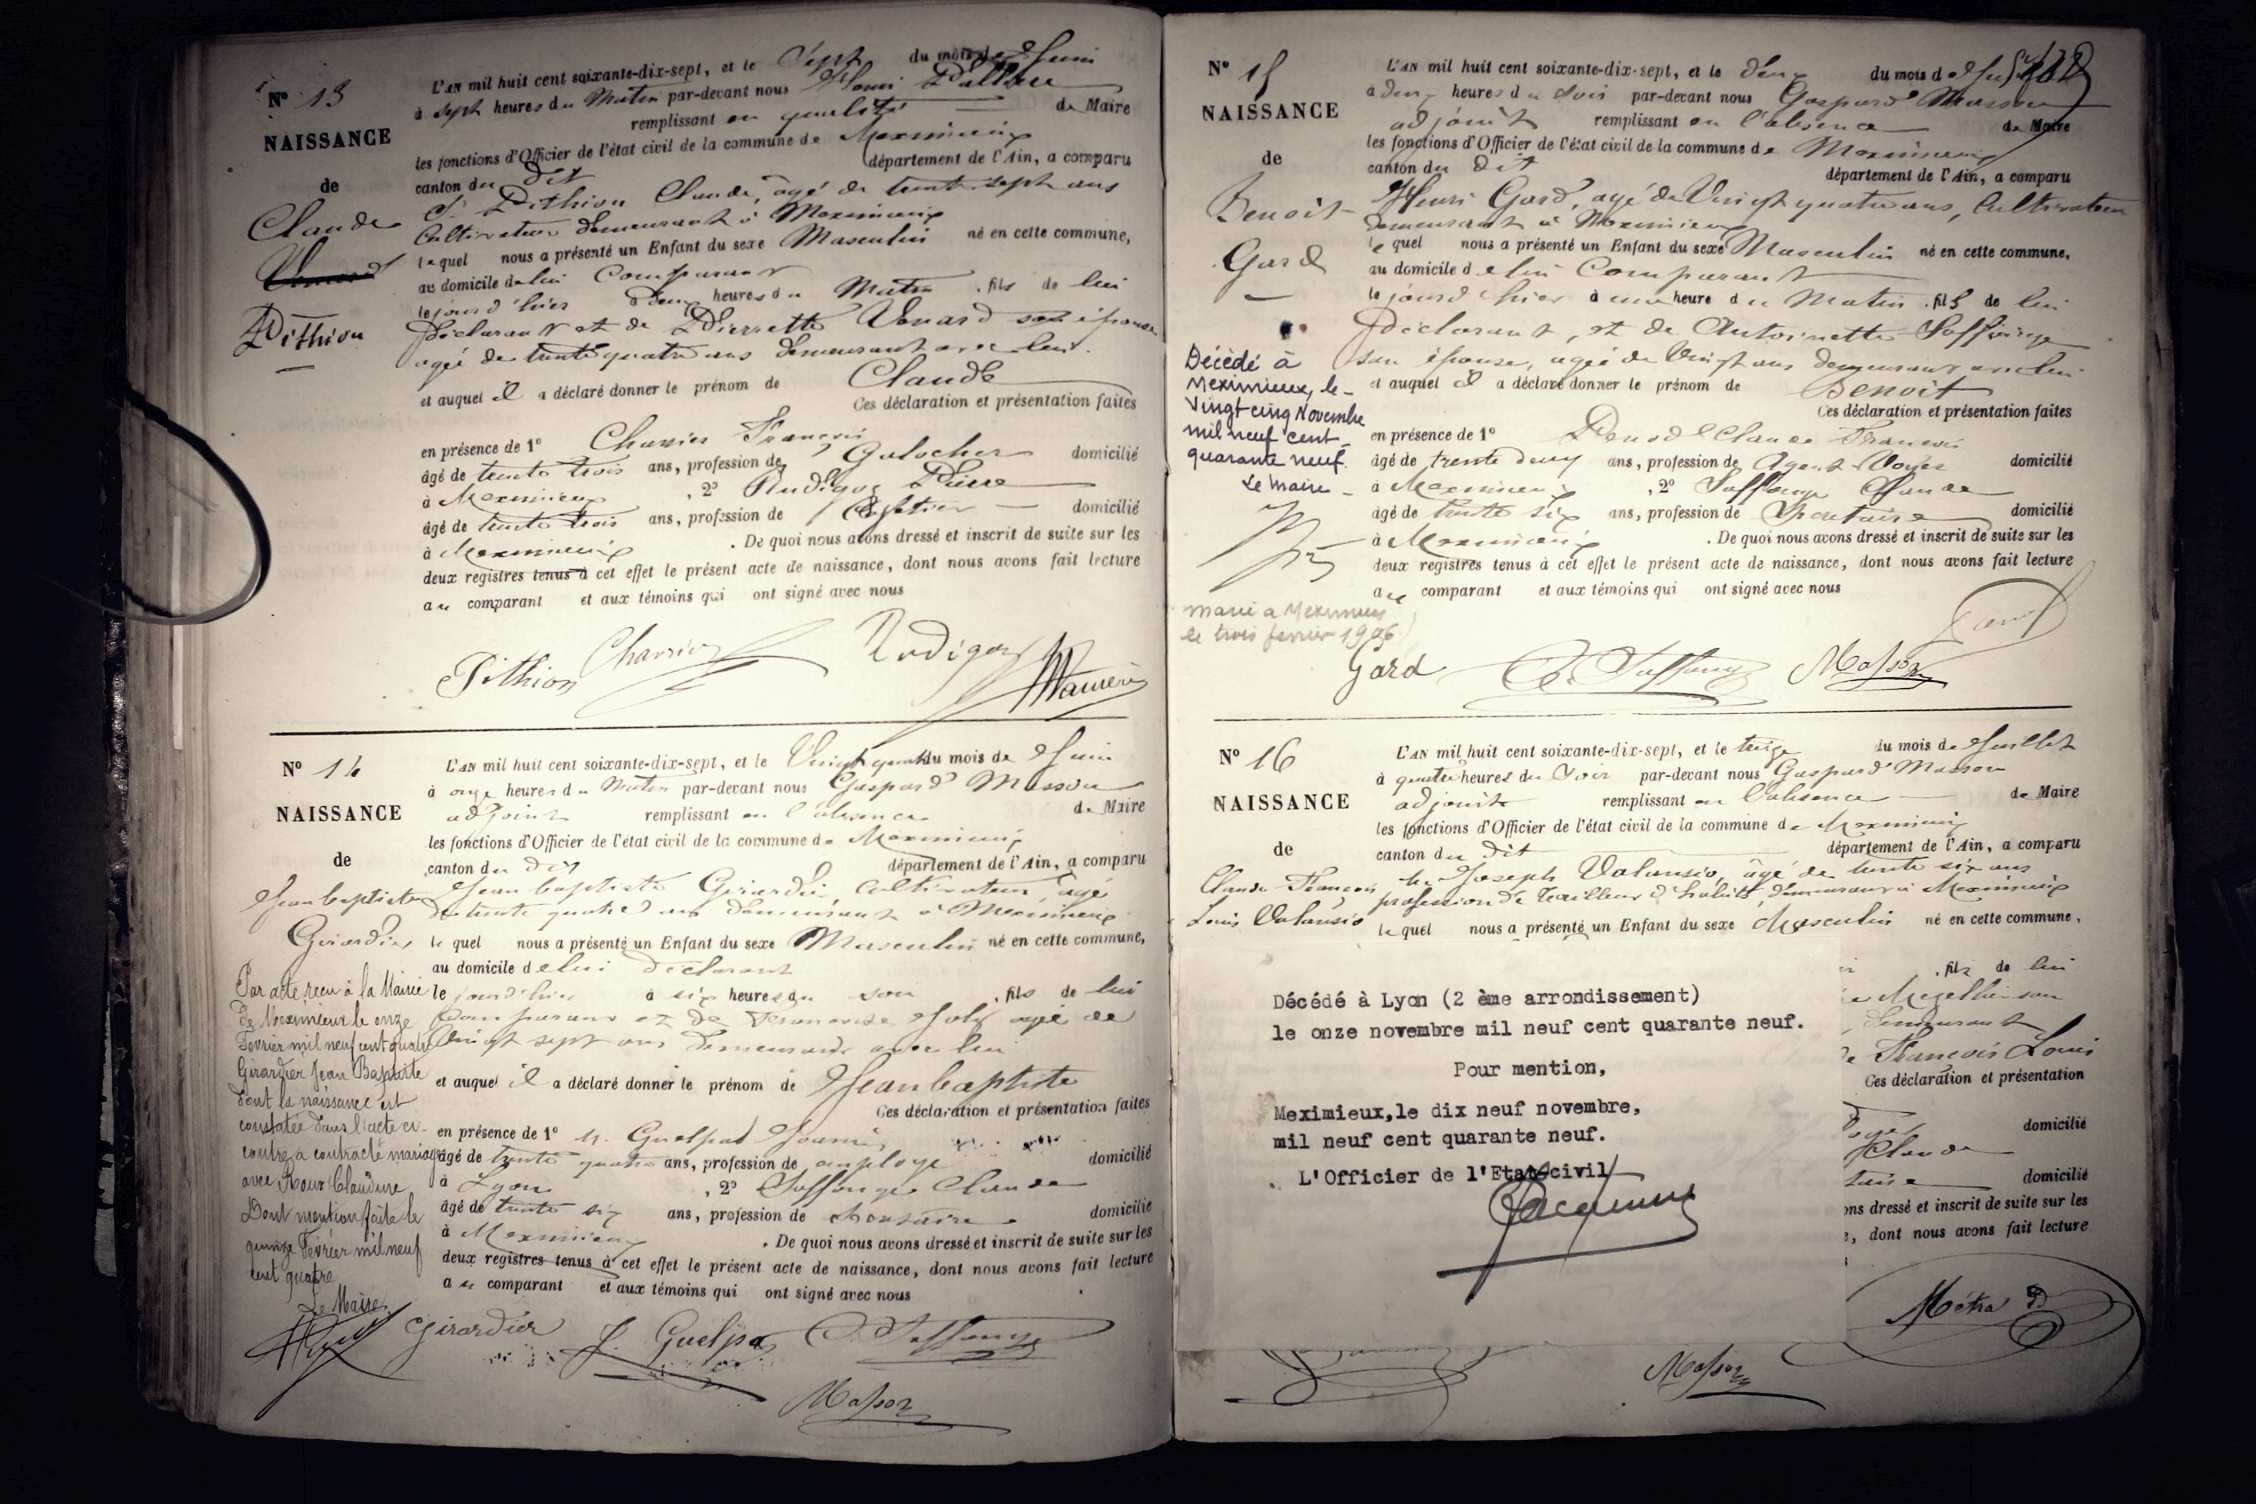 N° 13
NAISSANCE
de
Claude
Pithion
L'AN mil huit cent soixante-dix-sept, et le Sept du mois de Juin
à sept heures du Matin par-devant nous Henri
remplissant en qualité de Maire
les fonctions d'Officier de l'état civil de la commune de Meximieux
canton du dit département de l'Ain, a comparu
Sr Pithion Claude, agé de trente sept ans
Cultivateur demeurant à Meximieux
lequel nous a présenté un Enfant du sexe Masculin né en cette commune,
au domicile de lui Comparant
le jourd'hier à deux heures du Matin, fils de lui
Déclarant et de Pierrette Venard son épouse
agée de trente quatre ans demeurant avec lui.
et auquel il a déclaré donner le prénom de Claude
Ces déclaration et présentation faites
en présence de 1° Charrier François
âgé de trente trois ans, profession de Galocher domicilié
à Meximieux, 2° Rudigoz Pierre
âgé de trente trois ans, profession de domicilié
à Meximieux. De quoi nous avons dressé et inscrit de suite sur les
deux registres tenus à cet effet le présent acte de naissance, dont nous avons fait lecture
au comparant et aux témoins qui ont signé avec nous
Pithion Charrier Rudigoz
N° 14
NAISSANCE
de
Jean baptiste
Girardier
Par acte reçu à la Mairie
de Meximieux le onze
Février mil neuf cent quatre
Girardier Jean Baptiste
dont la naissance est
constatée dans l'acte ci-
contre a contracté mariage
avec Roux Claudine
Dont mention faite le
quinze Février mil neuf
cent quatre
Le Maire
L'AN mil huit cent soixante-dix-sept, et le Vingt quatre du mois de Juin
à onze heures du Matin par-devant nous Gaspard Masson
adjoint remplissant en l'absence de Maire
les fonctions d'Officier de l'état civil de la commune de Meximieux
canton du dit département de l'Ain, a comparu
Jean baptiste Girardier, Cultivateur, agé
de trente quatre ans demeurant à Meximieux
lequel nous a présenté un Enfant du sexe Masculin né en cette commune,
au domicile de lui déclarant
le jourd'hier à six heures du soir, fils de lui
Comparant et de Françoise Joly agée de
Vingt sept ans demeurant avec lui
et auquel il a déclaré donner le prénom de Jean baptiste
Ces déclaration et présentation faites
en présence de 1° Guelpa
âgé de trente quatre ans, profession de employé domicilié
à Lyon, 2° Suffonge Claude
âgé de trente six ans, profession de domicilié
à Meximieux. De quoi nous avons dressé et inscrit de suite sur les
deux registres tenus à cet effet le présent acte de naissance, dont nous avons fait lecture
au comparant et aux témoins qui ont signé avec nous
Girardier J. Guelpa C. Suffonge
Masson
N° 15
NAISSANCE
de
Benoit
Gard
Décédé à
Meximieux, le
Vingt cinq Novembre
mil neuf cent
quarante neuf.
Le Maire
marié à Meximieux
le trois février 1906
L'AN mil huit cent soixante-dix-sept, et le deux du mois de Juillet
à deux heures du soir par-devant nous Gaspard Masson
adjoint remplissant en l'absence de Maire
les fonctions d'Officier de l'état civil de la commune de Meximieux
canton du dit département de l'Ain, a comparu
Henri Gard, agé de Vingt quatre ans, Cultivateur
demeurant à Meximieux
lequel nous a présenté un Enfant du sexe Masculin né en cette commune,
au domicile de lui Comparant
le jourd'hier à une heure du Matin, fils de lui
Déclarant, et de Antoinette
son épouse, agée de Vingt ans demeurant avec lui
et auquel il a déclaré donner le prénom de Benoit
Ces déclaration et présentation faites
en présence de 1° Claude François
âgé de trente deux ans, profession de Agent Voyer domicilié
à Meximieux, 2° Suffonge Claude
âgé de trente six ans, profession de Secretaire domicilié
à Meximieux. De quoi nous avons dressé et inscrit de suite sur les
deux registres tenus à cet effet le présent acte de naissance, dont nous avons fait lecture
au comparant et aux témoins qui ont signé avec nous
Gard C. Suffonge Masson
N° 16
NAISSANCE
de
Claude François
Louis Valansio
L'AN mil huit cent soixante-dix-sept, et le treize du mois de Juillet
à quatre heures du Soir par-devant nous Gaspard Masson
adjoint remplissant en l'absence de Maire
les fonctions d'Officier de l'état civil de la commune de Meximieux
canton du dit département de l'Ain, a comparu
Joseph Valansio, âgé de trente six ans
profession de Tailleur d'habits, demeurant à Meximieux
lequel nous a présenté un Enfant du sexe Masculin né en cette commune,
, fils de lui
son
demeurant
François Louis
Ces déclaration et présentation
domicilié
Claude
domicilié
ons dressé et inscrit de suite sur les
, dont nous avons fait lecture
Décédé à Lyon (2 ème arrondissement)
le onze novembre mil neuf cent quarante neuf.
Pour mention,
Meximieux, le dix neuf novembre,
mil neuf cent quarante neuf.
L'Officier de l'Etat-civil
Métra
Masson